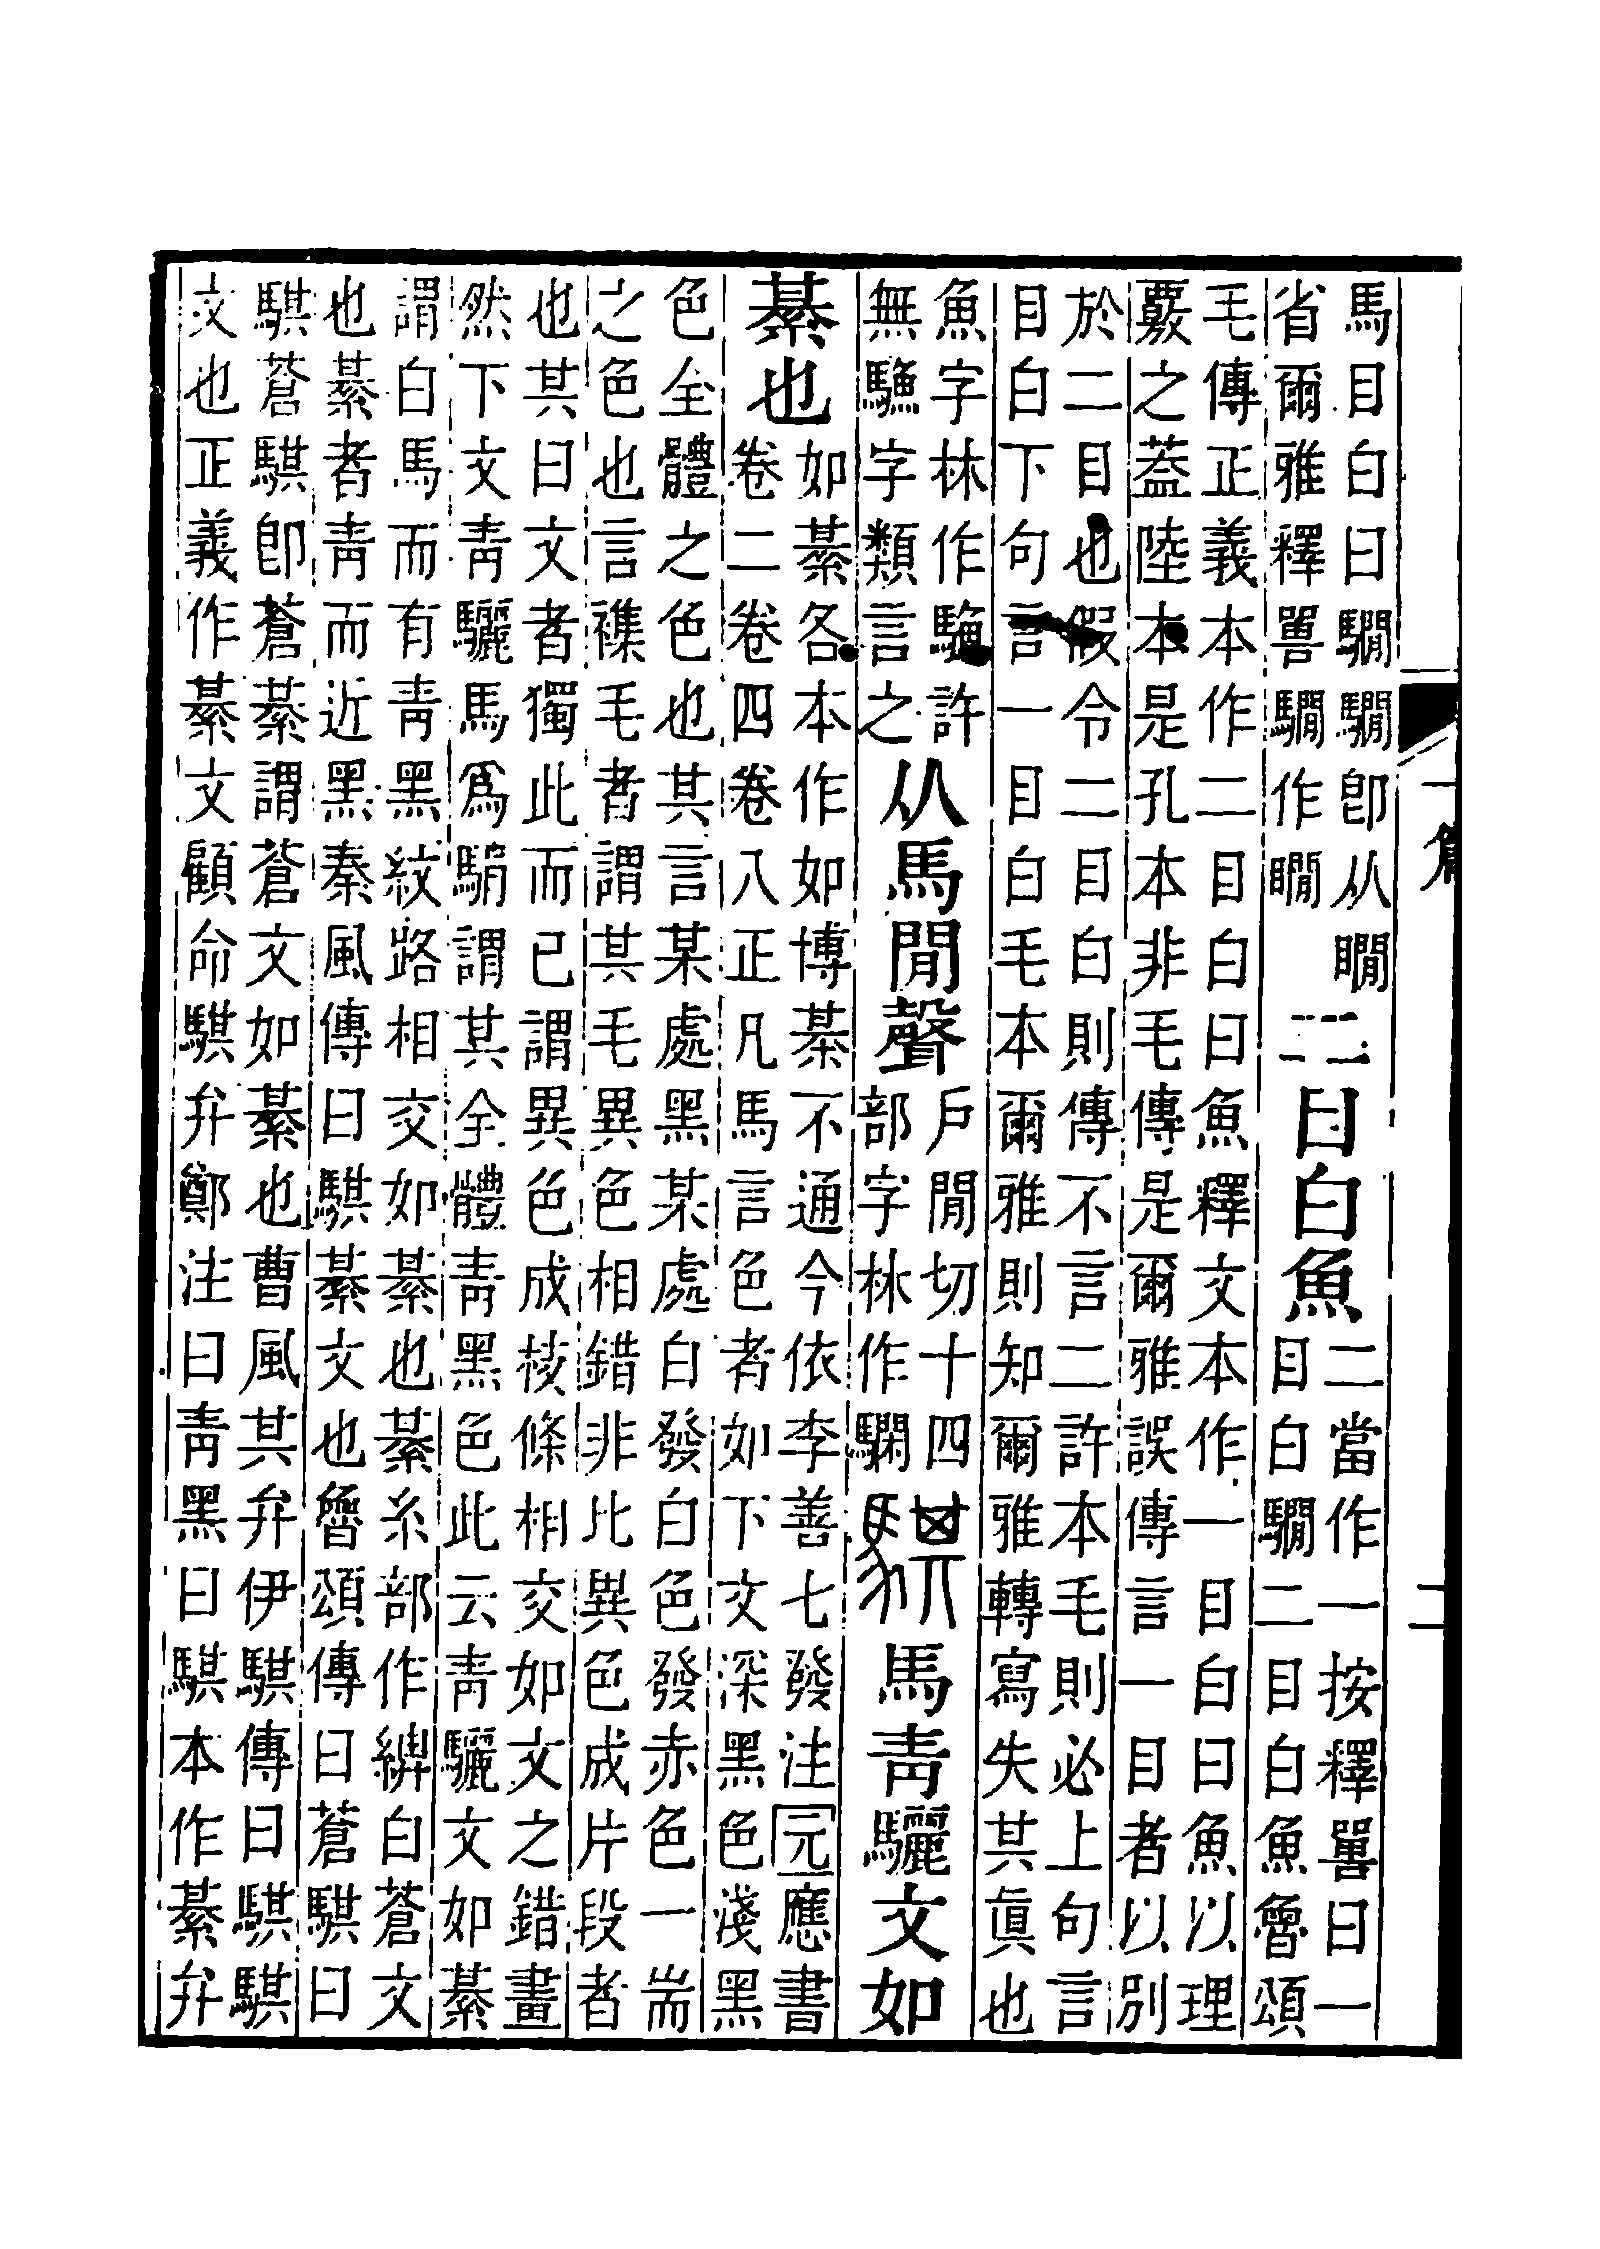 馬目白曰驧驧卽从瞯
省爾雅釋嘼驧作瞯
二目白魚
二當作一按釋嘼曰一
目白驧二目白魚魯頌
毛傳正義本作二目白曰魚釋文本作一目白曰魚以理
覈之蓋陸本是孔本非毛傳是爾雅誤傳言一目者以別
於二目也假令二目白則傳不言二許本毛則必上句言
目白下句言一目白毛本爾雅則知爾雅轉寫失其眞也
魚字林作䲣許
無䲣字類言之
从馬閒聲
戶閒切十四
部字林作騆
馬靑驪文如
綦也
如綦各本作如博棊不通今依李善七發注元應書
卷二卷四卷八正凡馬言色者如下文深黑色淺黑
色全體之色也其言某處黑某處白發白色發赤色一耑
之色也言襍毛者謂其毛異色相錯非比異色成片段者
也其曰文者獨此而已謂異色成棱條相交如文之錯畫
然下文靑驪馬爲駽謂其全體靑黑色此云靑驪文如綦
謂白馬而有靑黑紋路相交如綦也綦糸部作綥白蒼文
也綦者靑而近黑秦風傳曰騏綦文也魯頌傳曰蒼騏曰
騏蒼騏卽蒼綦謂蒼文如綦也曹風其弁伊騏傳曰騏騏
文也正義作綦文顧命騏弁鄭注曰靑黑曰騏本作綦弁